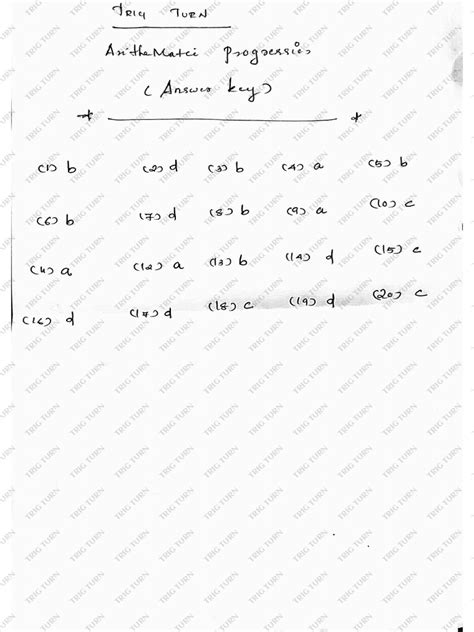 TRIG TURN
Arithematic progression
(Answer key)
(1) b (2) d (3) b (4) a (5) b
(6) b (7) d (8) b (9) a (10) c
(11) a (12) a (13) b (14) d (15) c
(16) d (17) d (18) c (19) d (20) c